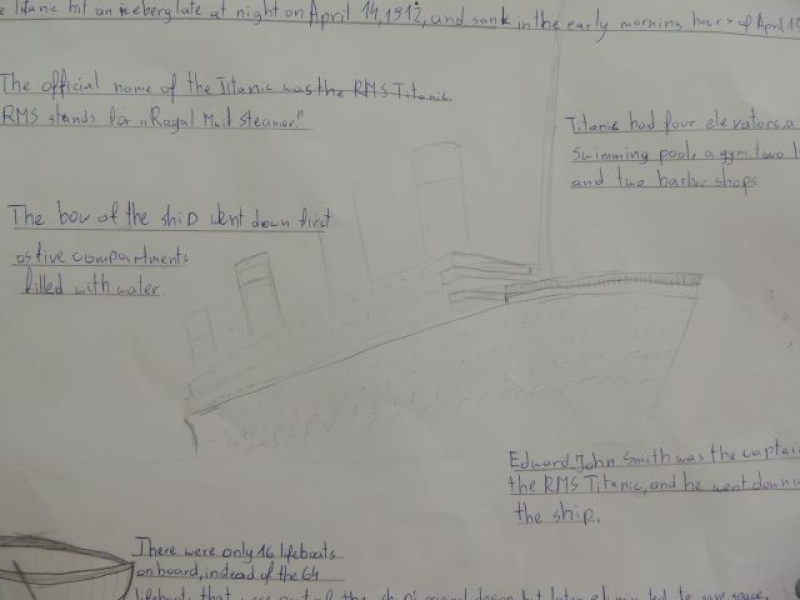 Titanic hit an iceberg late at night on April 14, 1912, and sank in the early morning hours of April 15
The official name of the Titanic was the RMS Titanic
RMS stands for „Royal Mail Steamer."
Titanic had four elevators, a
swimming pool, a gym, two
and two barber shops
The bow of the ship went down first
as five compartments
filled with water.
Edward John Smith was the captain
the RMS Titanic, and he went down
the ship.
There were only 16 lifeboats
on board, instead of the 64
lifeboats that were part of the ship's original design but later eliminated to save space.